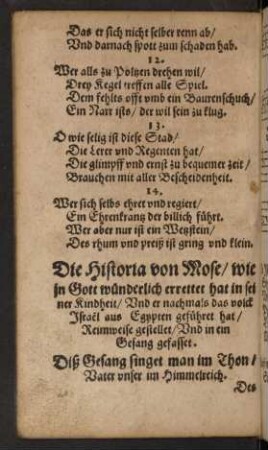 Das er sich nicht selber renn ab/
Vnd darnach spott zum schaden hab.
12.
Wer alls zu Poltzen drehen wil/
Drey Kegel treffen alle Spiel.
Dem fehlts offt vmb ein Baurenschuch/
Ein Narr ists/ der wil sein zu klug.
13.
O wie selig ist diese Stad/
Die Lerer vnd Regenten hat/
Die glimpff vnd ernst zu bequemer zeit/
Brauchen mit aller Bescheidenheit.
14.
Wer sich selbs ehret vnd regiert/
Ein Ehrenkrantz der billich führt.
Wer aber nur ist ein Wetzstein/
Des rhum vnd preiß ist gring vnd klein.
Die Historia von Mose/ wie
jn Gott wünderlich errettet hat in sei
ner Kindheit/ Vnd er nachmals das volck
Israël aus Egypten geführet hat/
Reimweise gestellet/ Vnd in ein
Gesang gefasset.
Diß Gesang singet man im Thon/
Vater vnser im Himmelreich.
Des